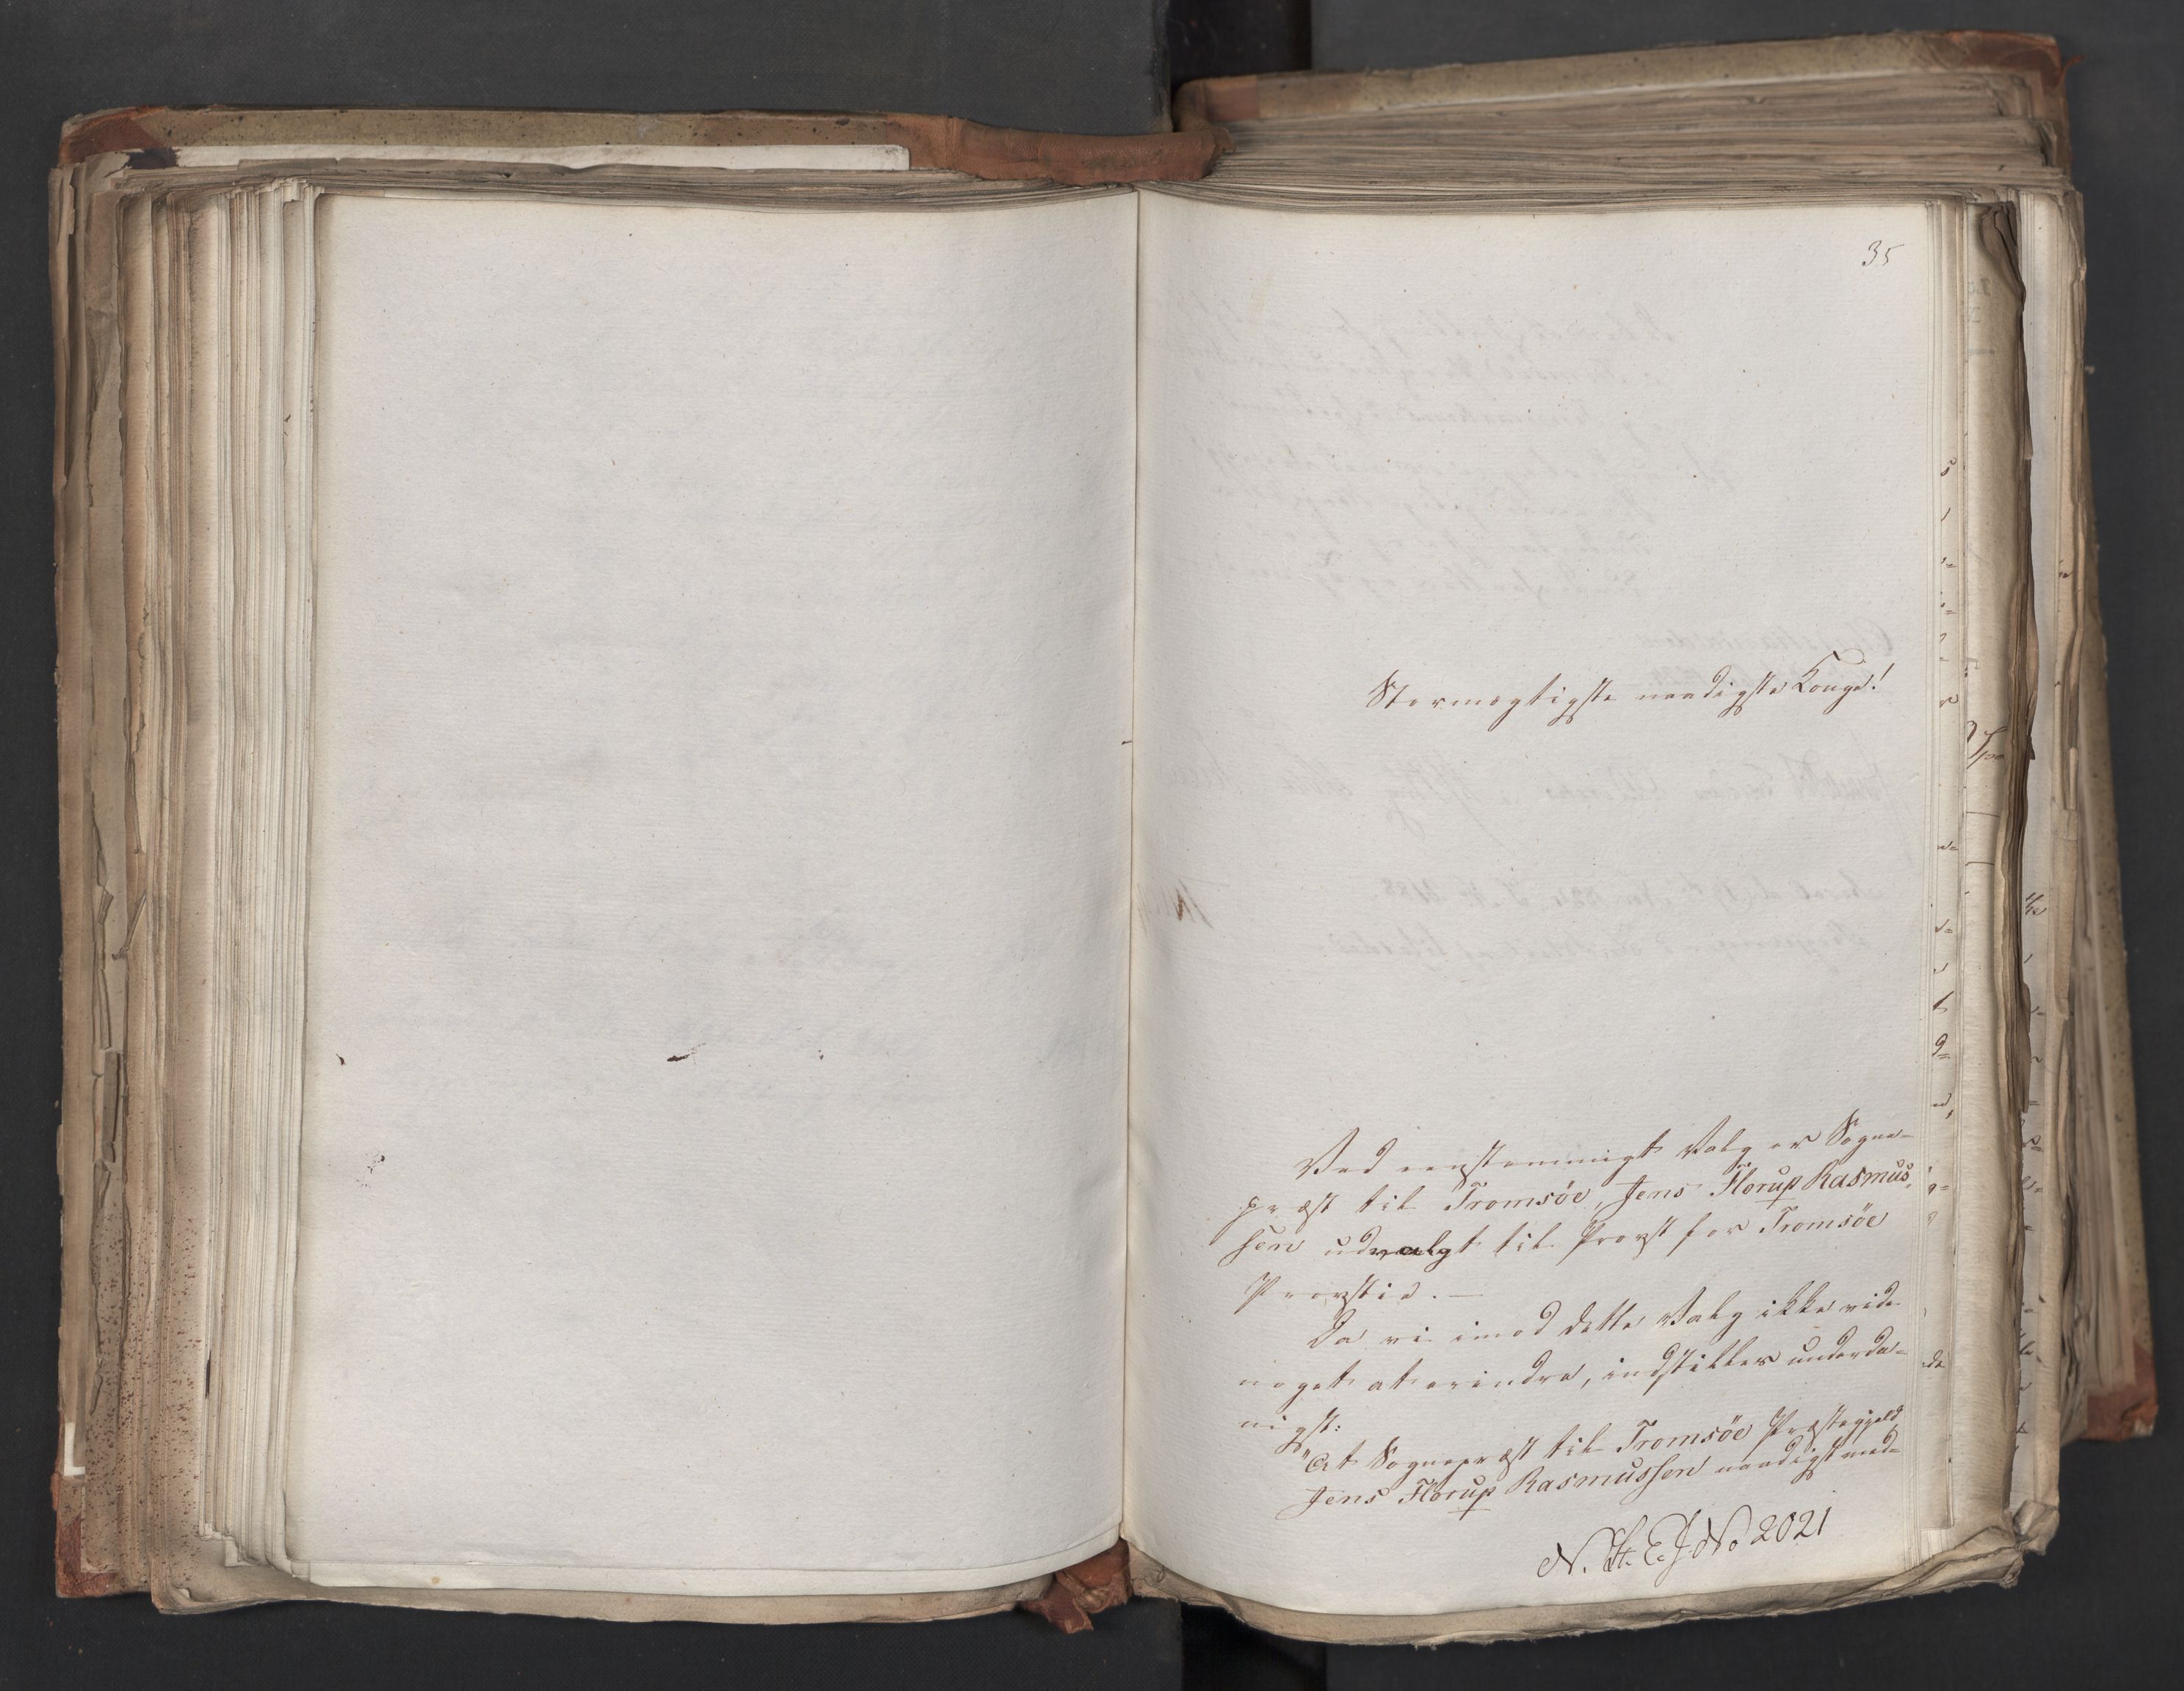 35
Stormægtigste naadigste Konge!
Ved eenstemmigt Valg er Sogne-
præst til Tromsöe, Jens Florup Rasmus-
sen udvalgt til Provst for Tromsöe
Provstie. —
Da vi imod dette Valg ikke vide
noget at erindre, indstilles underda-
nigst:
"At Sognepræst til Tromsöe Præstegjeld
Jens Florup Rasmussen naadigst med-
N. H. E. J. No 2021